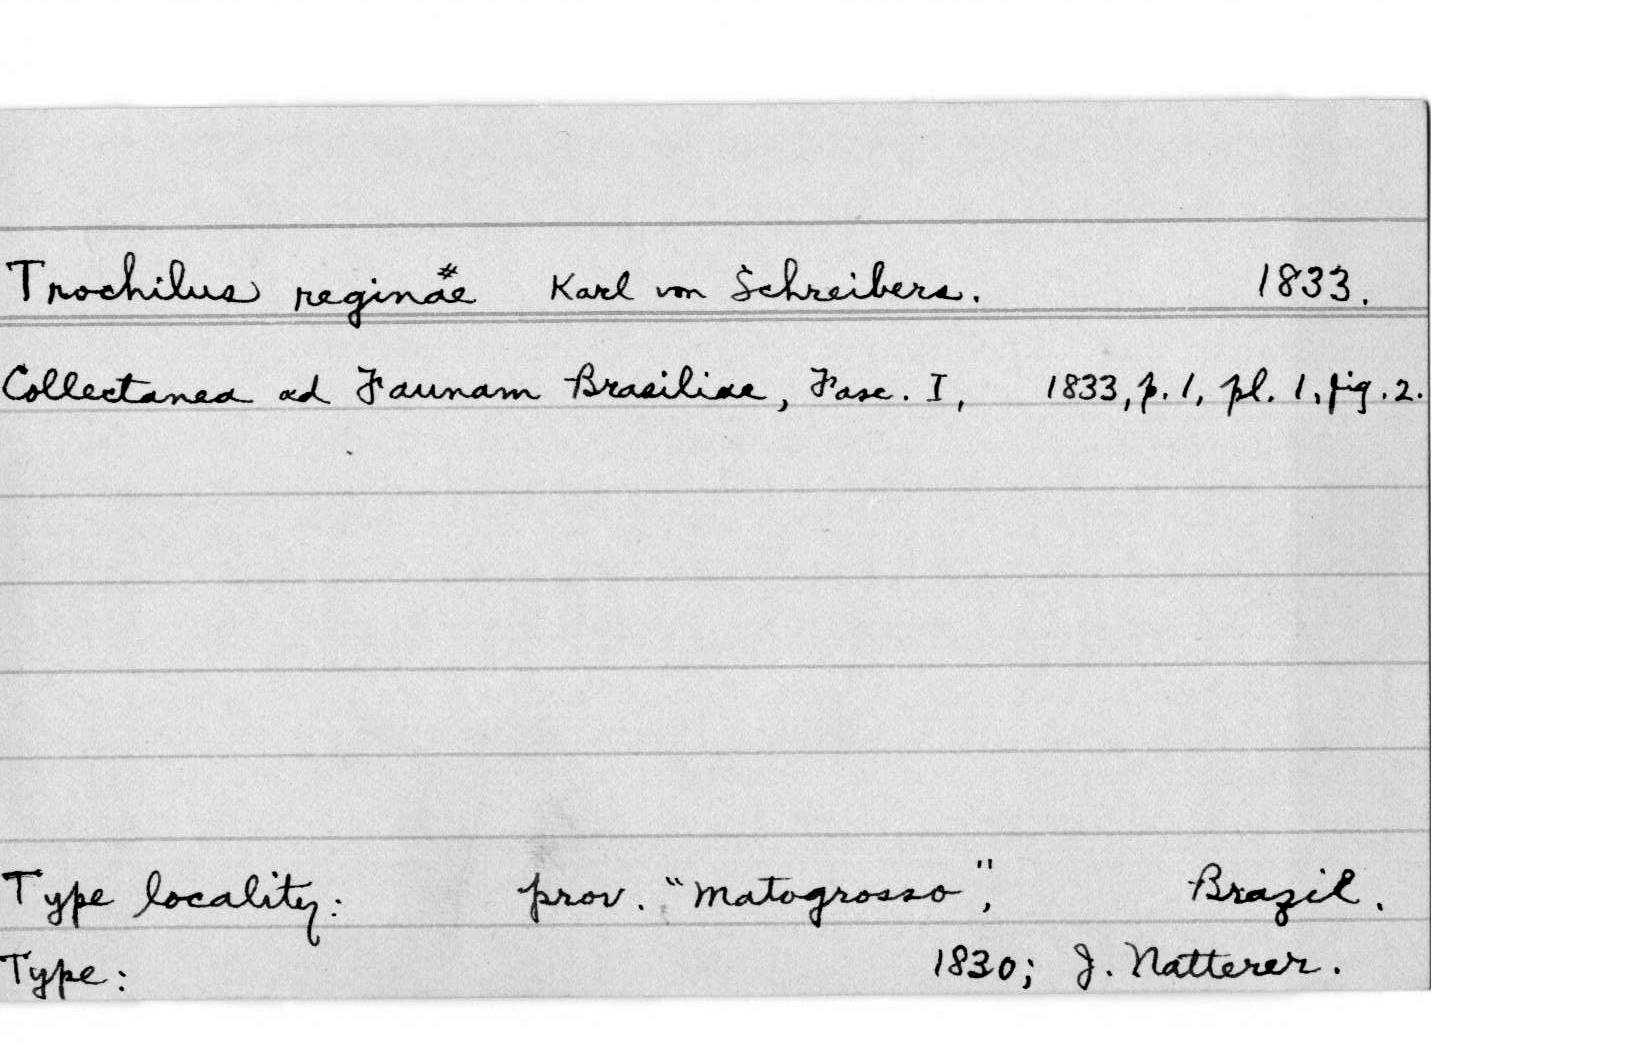 Trochilus reginae# Karl von Schreibers. 1833.
Collectanea ad Faunam Brasiliae, Fasc. I, 1833, p. 1, pl. 1, fig. 2.
Type locality: prov. "Matogrosso", Brazil.
Type: 1830; J. Natterer.